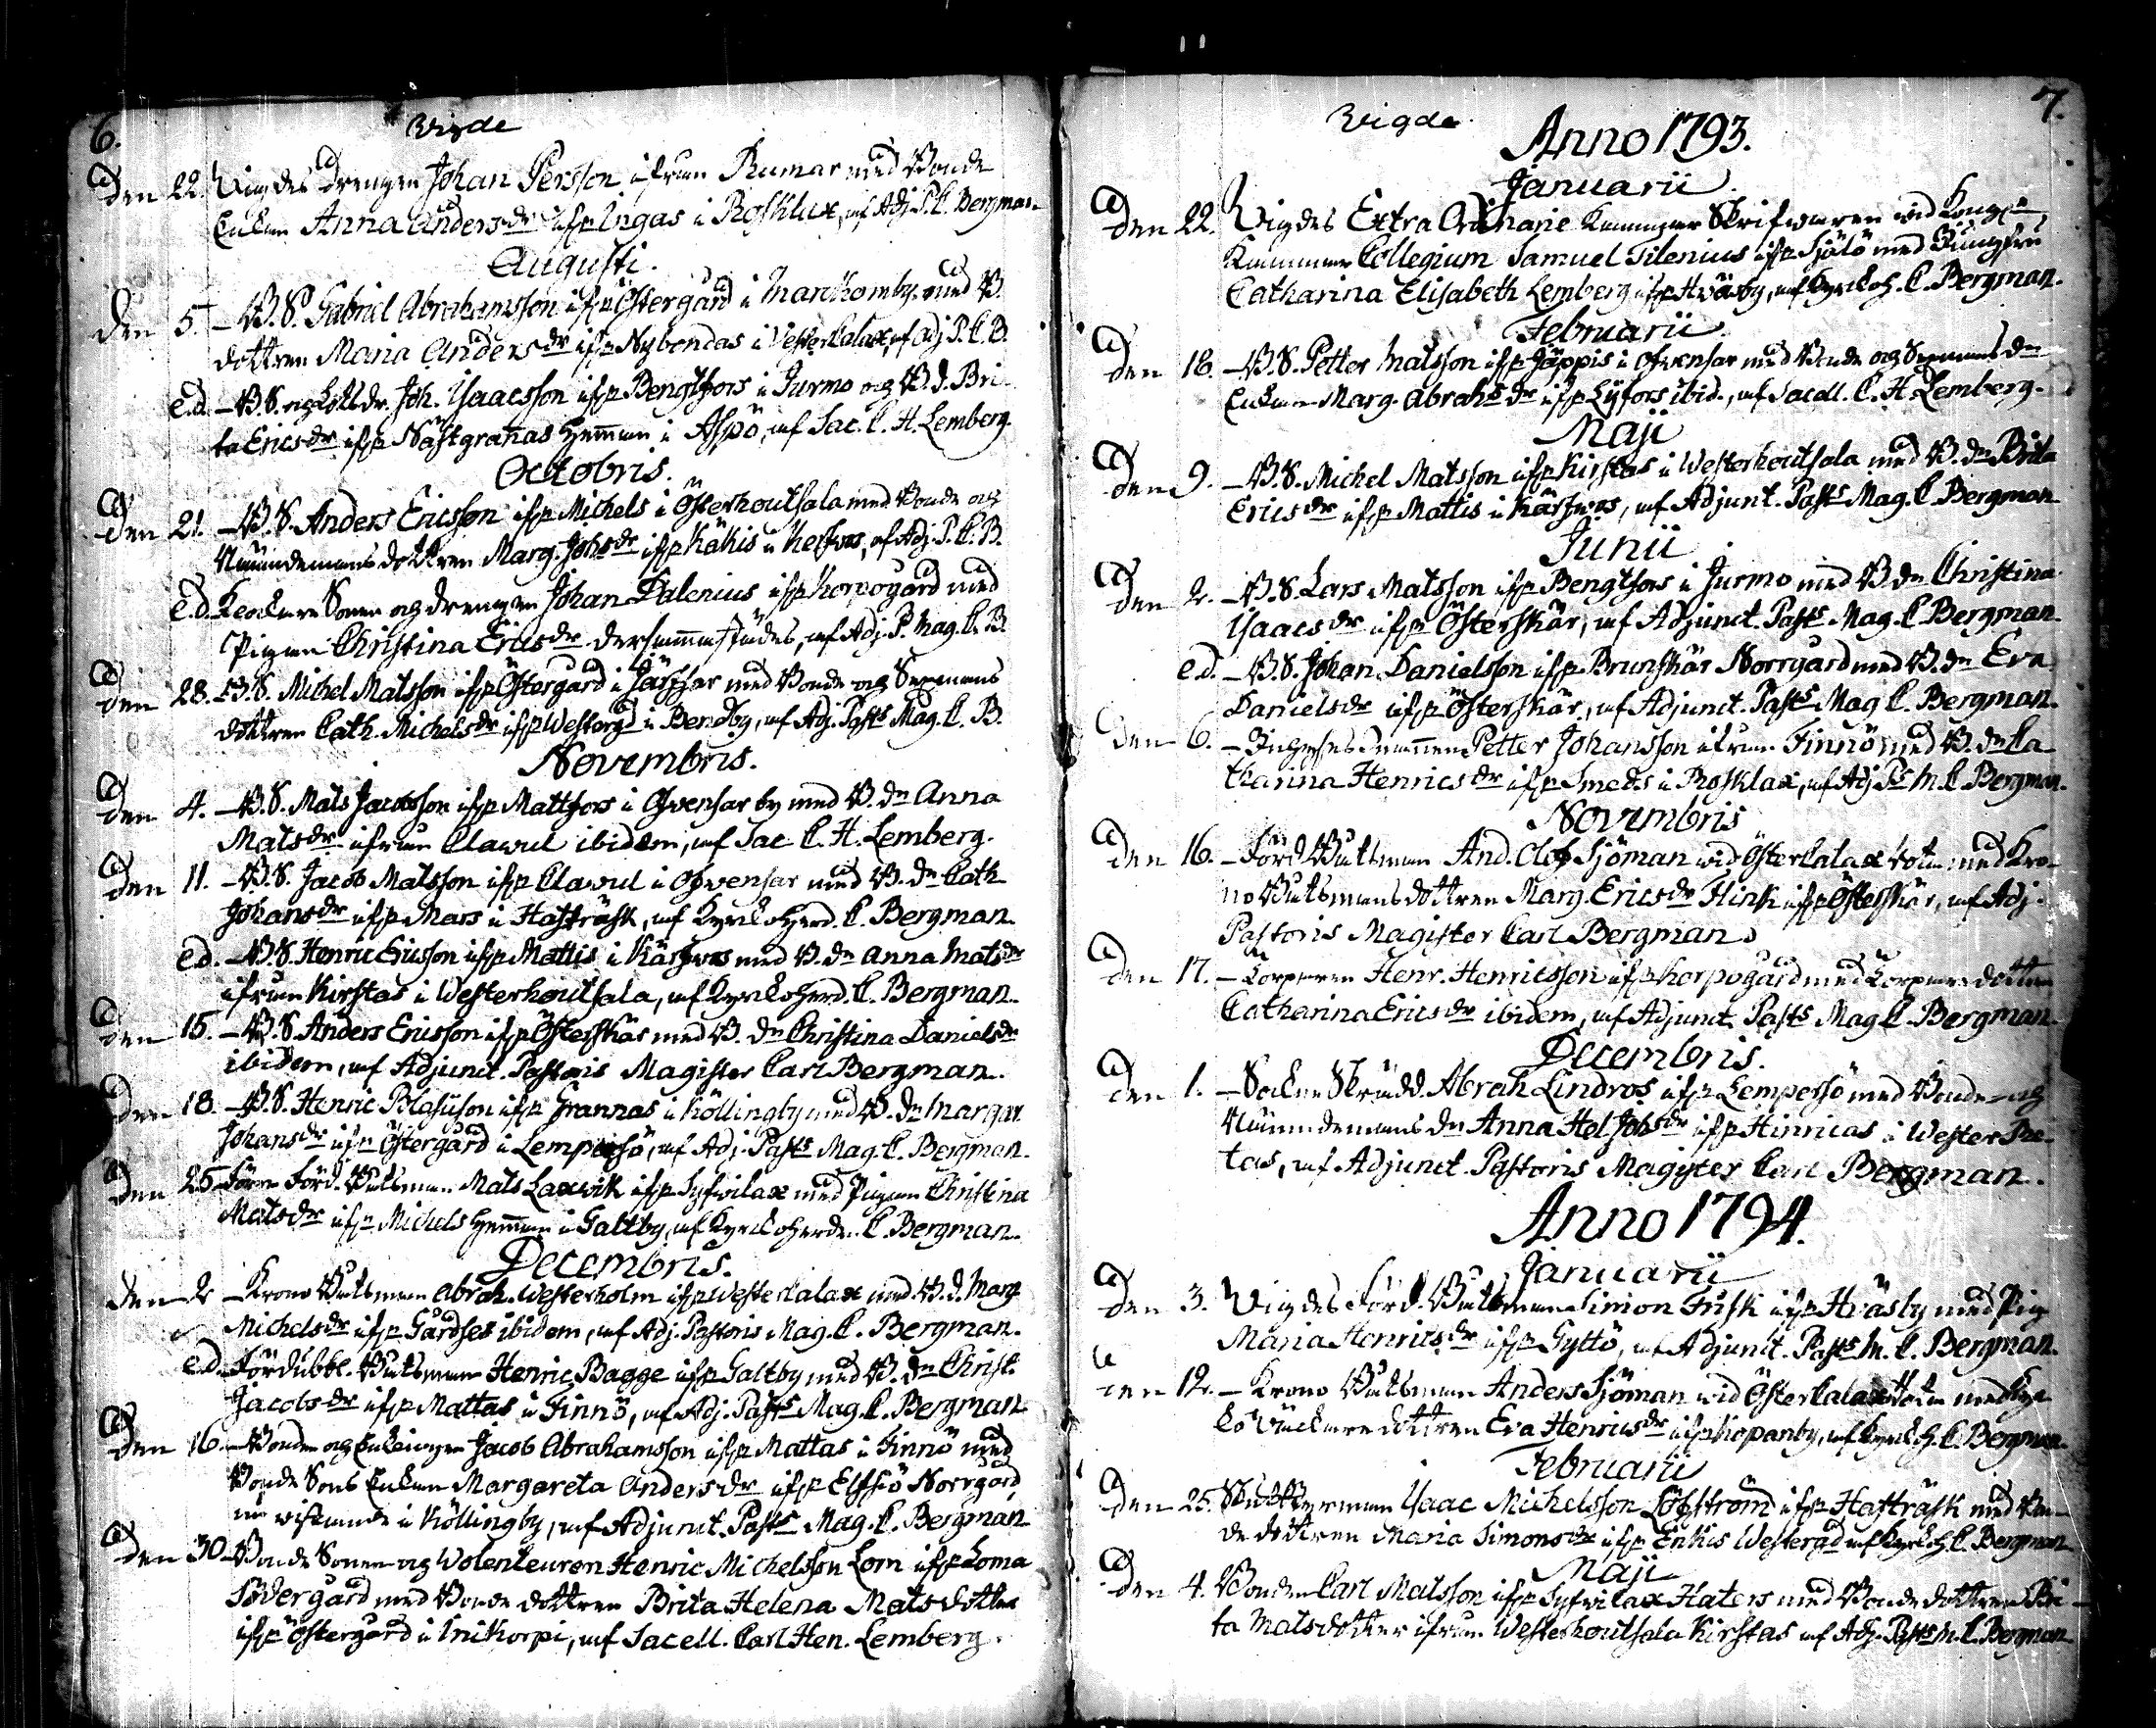 6.
Vigde
Den 22. Vigdes Drengen Johan Persson ifrån Rumar med Bonde
Enkan Anna Andersdr ifrn Ingas i Rosklax, af Adj. P. C. Bergman.
Augusti.
Den 5. – B. S. Gabriel Abrahamsson ifrn Östergård i Marckomby med B.
dottren Maria Andersdr ifrn Nybondas i Vesterkalax, af Adj. P. C. B.
e.d. – B. S. og Joh. Isaacsson ifrn Bengtfors i Jurmo og B. d. Bri
ta Ericsdr ifrn Nästgrañas Hemman i Aspö, af Sac. C. H. Lemberg.
Octobris.
Den 21. – B. S. Anders Ericsson ifrn Michels i Österhoutsala med Bonde og
Nämndemans dottren Marg. Johsdr ifrn Käkis i Kersvos, af Adj. P. C. B.
e.d. Sonen og drengen Johan Dalenius ifrn Korpogård med
Pigan Christina Ericsdr dersammastädes, af Adj. P. Mag. C. B.
Den 28. B. S. Michel Matsson ifrn Östergård i med Bonde og Sexmans
dottren Cath. Michelsdr ifrn Westergd i Bendby, af Adj. Pasts Mag. C. B.
Novembris.
Den 4. – B. S. Mats Jacobsson ifrn Mattfors i Ofvensar by med B. dn Anna
Matsdr ifrån Clawul ibidem, af Sac C. H. Lemberg.
Den 11. – B. S. Jacob Matsson ifrn Clawul i Ofvensar med B. dn Cath
Johansdr ifrn Mass i Hafträsk, af Kyrkoherd. C. Bergman.
e.d. – B. S. Henric Ericsson ifrn Mattis i Kärsvos med B. dn Anna Matsdr
ifrån Kirstas i Westerhoutsala, af Kyrkoherd. C. Bergman.
Den 15. – B. S. Anders Ericsson ifrn Österskär med B. dn Christina Danielsdr
ibidem, af Adjunct. Pastoris Magister Carl Bergman.
Den 18. – B. S. Henric ifrn Grannas i Köllingby med B. dn Margar.
Johansdr ifrn Östergård i Lempersö, af Adj. Pasts Mag. C. Bergman.
Den 25. Förd. Båtsman Mats Laxwik ifrn Syfvilax med Pigan Christina
Matsdr ifrn Michels Hemman i Galtby, af Kyrkoherden C. Bergman.
Decembris.
Den 2 – Krono Båtsman Abrah. Westerholm ifrn Westerkalax med B. d. Marg
Michelsdr ifrn Gårdses ibidem, af Adj. Pastoris Mag. C. Bergman.
e.d. Fördubbl. Båtsman Henric Bagge ifrn Galtby med B. dn Christ.
Jacobsdr ifrn Mattas i Finnö, af Adj. Pasts Mag. C. Bergman
Den 16. – Bonden og Enklingen Jacob Abrahamsson ifrn Mattas i Finnö med
Bonde Sons Enkan Margareta Andersdr ifrn Elfsjö Norrgård
nu vistande i Köllingby, af Adjunct. Pasts Mag. C. Bergman
Den 30. Bonde Sonen og Volenteuren Henric Michelsson Lom ifrn Loma
Södergård med Bonde dottren Brita Helena Mats dotter
ifrn Östergård i Krikorpi, af Sacell. Carl Hen. Lemberg.
7.
Vigde
Anno 1793.
Januarii.
Den 22. Vigdes Extra Ordinarie Kammar Skrifwaren vid Kongl.
Kammar Collegium Samuel Tilenius ifrn Sjölö med Jungfru
Catharina Elisabeth Lemberg ifrn Hväsby, af Kyrkoh. C. Bergman.
Februarii
Den 16. – B. S. Petter Matsson ifrn Jäppis i Ofvensar med Bonde og Sexmans dn
Enkan Marg. Abrahsdr ifrn Lyfors ibid., af Sacell. C. H. Lemberg.
Maji
Den 9. – B. S. Michel Matsson ifrn Kirstas i Westerhoutsala med B. dn Brita
Ericsdr ifrn Mattis i Kärsvos, af Adjunt. Pasts Mag. C. Bergman
Junii
Den 2. – B. S. Lars Matsson ifrn Bengtfors i Jurmo med B dn Christina
Isaacsdr ifrn Österskär, af Adjunct. Pasts Mag. C Bergman.
e.d. – B. S. Johan Danielsson ifrn Brunskär Norrgård med B. dn Eva
Danielsdr ifrn Österskär, af Adjunct. Pasts Mag C. Bergman.
Den 6. – Petter Johansson ifrån Finnö med B. dn Ca
tharina Henricsdr ifrn Smeds i Rosklax, af Adj Ps M. C. Bergman.
Novembris
Den 16. – Förd. Båtsman And. Olof Sjöman vid Österkalax Rote med Kro
no Båtsmans dottren Marg. Ericsdr Hink ifrn Österskär, af Adj.
Pastoris Magister Carl Bergman.
Den 17. – Torparen Henr. Henricsson ifrn Korpogård med Torpare dottren
Catharina Ericsdr ibidem, af Adjunct. Pasts Mag C. Bergman.
Decembris.
Den 1. – Sockne Skrädd. Abrah Lindros ifrn Lempersö med Bonde og
Nämndemans dn Anna Hel Johsdr ifrn Hinricas i Wester Re
tas, af Adjunct. Pastoris Magister Carl Bergman.
Anno 1794.
Januarii
Den 3. Vigdes Förd. Båtsman Simon Frisk ifrn Hväsby med Pig
Maria Henricsdr ifrn Gyttö, af Adjunct. Pasts M. C. Bergman.
Den 12. – Krono Båtsman Anders Sjöman vid Österkalax Rote med Kyr
ko Väcktare dottren Eva Henricsdr ifrn Kopanby, af Kyrkoh. C. Bergman.
Februarii
Den 25. Isaac Michelsson Löfström ifrn Hafträsk med Bon
de dottren Maria Simonsdr ifrn Enkis Westergd af Kyrkoh. C. Bergman.
Maji
Den 4. Bonden Carl Matsson ifrn Syfvilax Haters med Bonde dottren Bri
ta Matsdotter ifrån Westerhoutsala Kirstas af Adj. Pasts M. C. Bergman